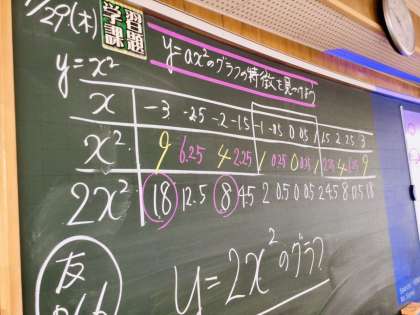 /29(木)
学習課題
y=ax²のグラフの特徴を見つけよう
y=x²
x -3 -2.5 -2 -1.5 -1 -0.5 0 0.5 1 1.5 2 2.5 3
x² 9 6.25 4 2.25 1 0.25 0 0.25 1 2.25 4 6.25 9
2x² 18 12.5 8 4.5 2 0.5 0 0.5 2 4.5 8 12.5 18
y=2x²のグラフ
友